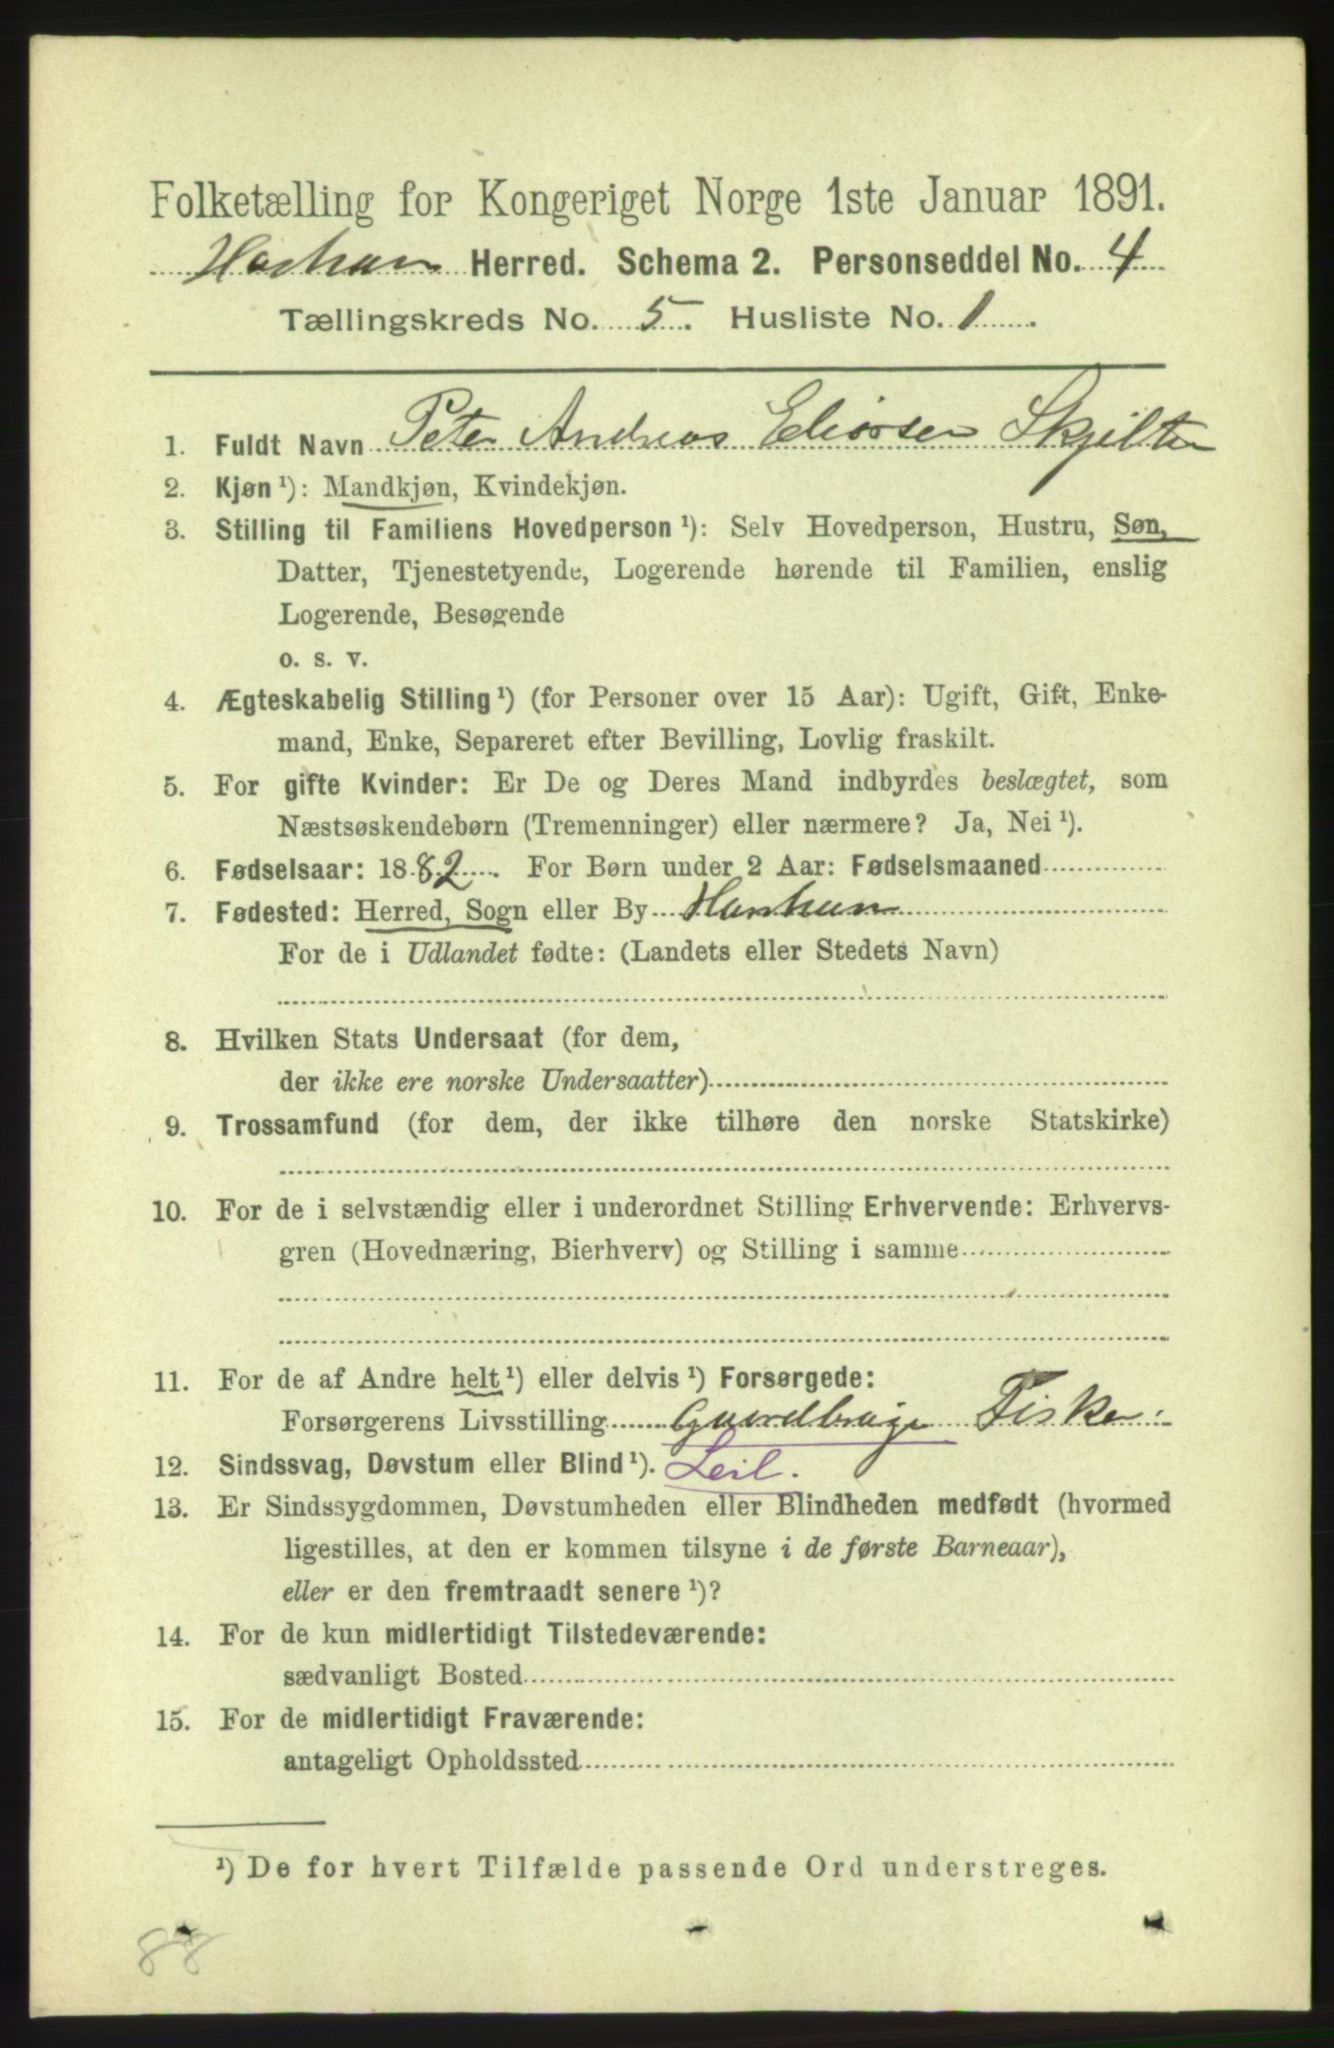 Folketælling for Kongeriget Norge 1ste Januar 1891.
Herred. Schema 2. Personseddel No. 4
Tællingskreds No. 5. Husliste No. 1
1. Fuldt Navn Peter Andreas Skjelten
2. Kjøn ¹): Mandkjøn, Kvindekjøn.
3. Stilling til Familiens Hovedperson ¹): Selv Hovedperson, Hustru, Søn,
Datter, Tjenestetyende, Logerende hørende til Familien, enslig
Logerende, Besøgende
o. s. v.
4. Ægteskabelig Stilling ¹) (for Personer over 15 Aar): Ugift, Gift, Enke-
mand, Enke, Separeret efter Bevilling, Lovlig fraskilt.
5. For gifte Kvinder: Er De og Deres Mand indbyrdes beslægtet, som
Næstsøskendebørn (Tremenninger) eller nærmere? Ja, Nei ¹).
6. Fødselsaar: 1882. For Børn under 2 Aar: Fødselsmaaned
7. Fødested: Herred, Sogn eller By
For de i Udlandet fødte: (Landets eller Stedets Navn)
8. Hvilken Stats Undersaat (for dem,
der ikke ere norske Undersaatter)
9. Trossamfund (for dem, der ikke tilhøre den norske Statskirke)
10. For de i selvstændig eller i underordnet Stilling Erhvervende: Erhvervs-
gren (Hovednæring, Bierhverv) og Stilling i samme
11. For de af Andre helt ¹) eller delvis ¹) Forsørgede:
Forsørgerens Livsstilling Gaardbruger Fisker.
12. Sindssvag, Døvstum eller Blind ¹). Leil.
13. Er Sindssygdommen, Døvstumheden eller Blindheden medfødt (hvormed
ligestilles, at den er kommen tilsyne i de første Barneaar),
eller er den fremtraadt senere ¹)?
14. For de kun midlertidigt Tilstedeværende:
sædvanligt Bosted
15. For de midlertidigt Fraværende:
antageligt Opholdssted
¹) De for hvert Tilfælde passende Ord understreges.
88